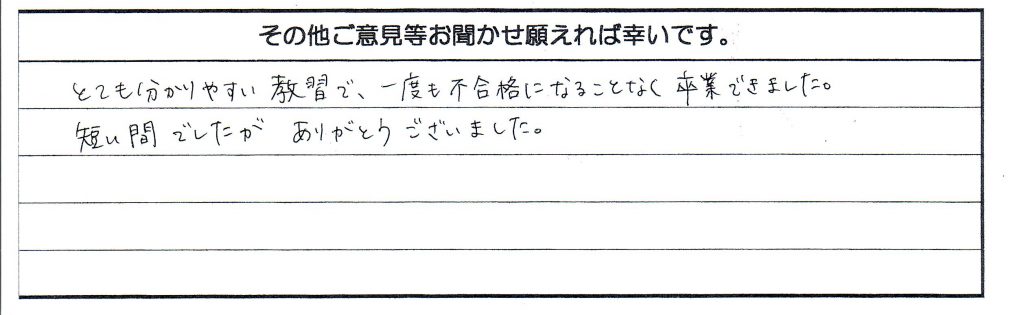 その他ご意見等お聞かせ願えれば幸いです。
とても分かりやすい教習で、一度も不合格になることなく卒業できました。
短い間でしたが ありがとうございました。